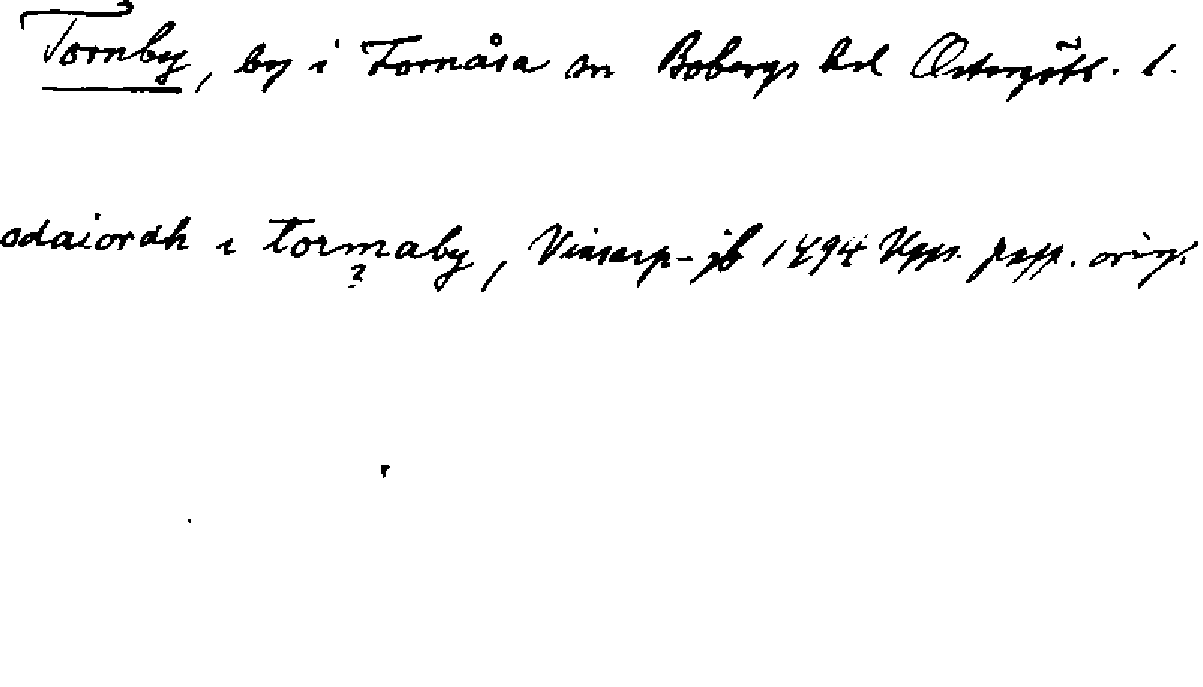 Tornby, by i Fornåsa sn Bobergs hd Östergötl. l.
odaiordh i tormaby, Viserp-jb 1494 Upps. papp. orig.
?